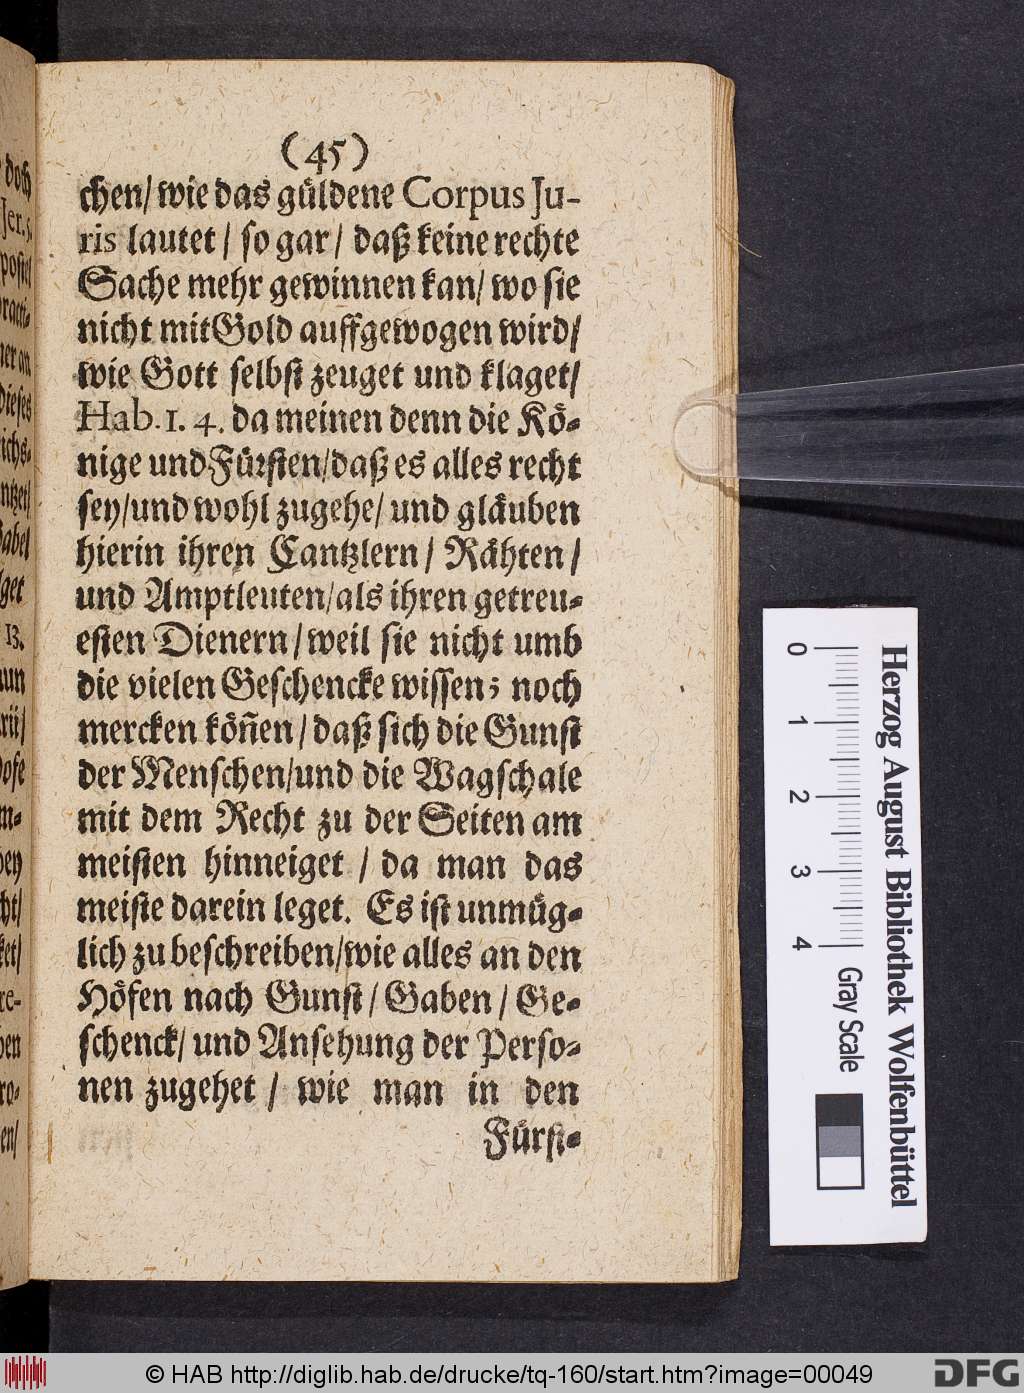 (45)
chen/ wie das güldene Corpus Ju-
ris lautet / so gar / daß keine rechte
Sache mehr gewinnen kan/ wo sie
nicht mit Gold auffgewogen wird/
wie Gott selbst zeuget und klaget/
Hab. 1. 4. da meinen denn die Kö-
nige und Fürsten/daß es alles recht
sey/und wohl zugehe/ und gläuben
hierin ihren Cantzlern / Rähten /
und Amptleuten/als ihren getreu-
esten Dienern / weil sie nicht umb
die vielen Geschencke wissen; noch
mercken köñen / daß sich die Gunst
der Menschen/und die Wagschale
mit dem Recht zu der Seiten am
meisten hinneiget / da man das
meiste darein leget. Es ist unmüg-
lich zu beschreiben/wie alles an den
Höfen nach Gunst / Gaben / Ge-
schenck/ und Ansehung der Perso-
nen zugehet / wie man in den
Fürst-
doch
Jer. 5.
dieses
get
13.
nun
rii/
0 1 2 3 4 Gray Scale
Herzog August Bibliothek Wolfenbüttel
© HAB http://diglib.hab.de/drucke/tq-160/start.htm?image=00049
DFG